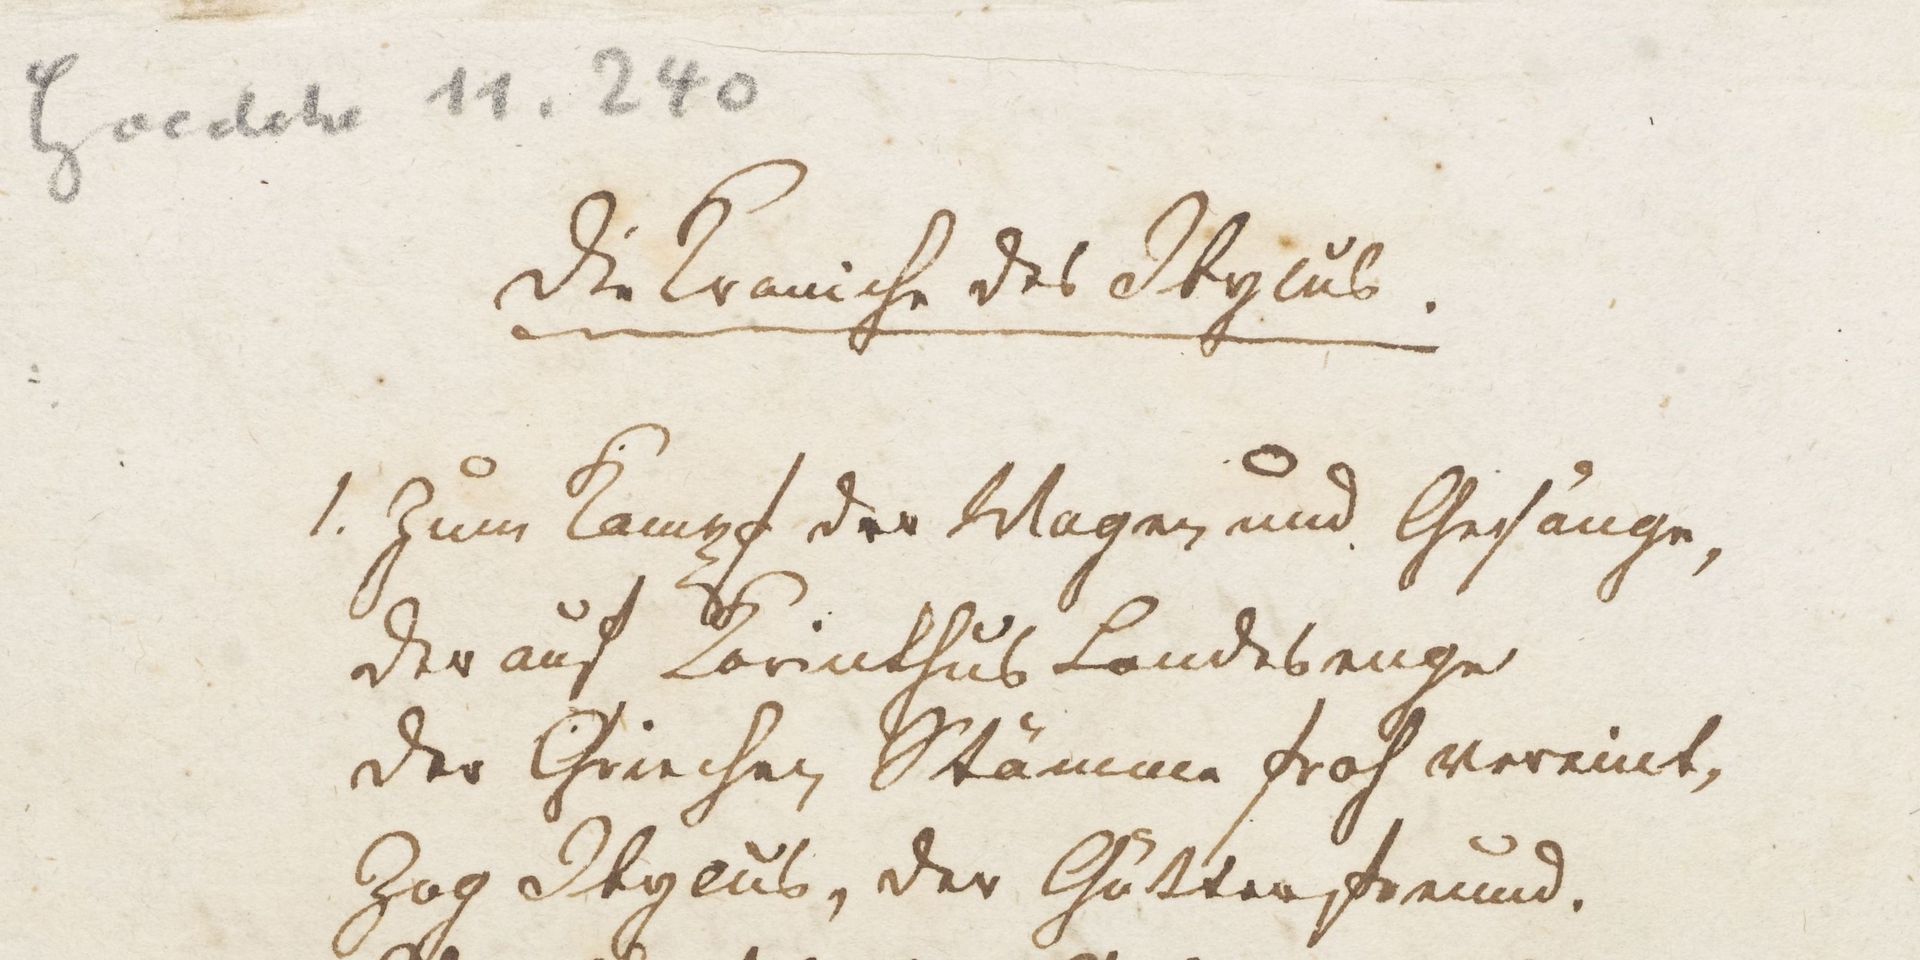 Goedeke 11.240
Die Kraniche des Ibycus.
1. Zum Kampf der Wagen und Gesänge,
der auf Korinthus Landesenge
der Griechen Stämme froh vereint,
Zog Ibycus, der Götterfreund.